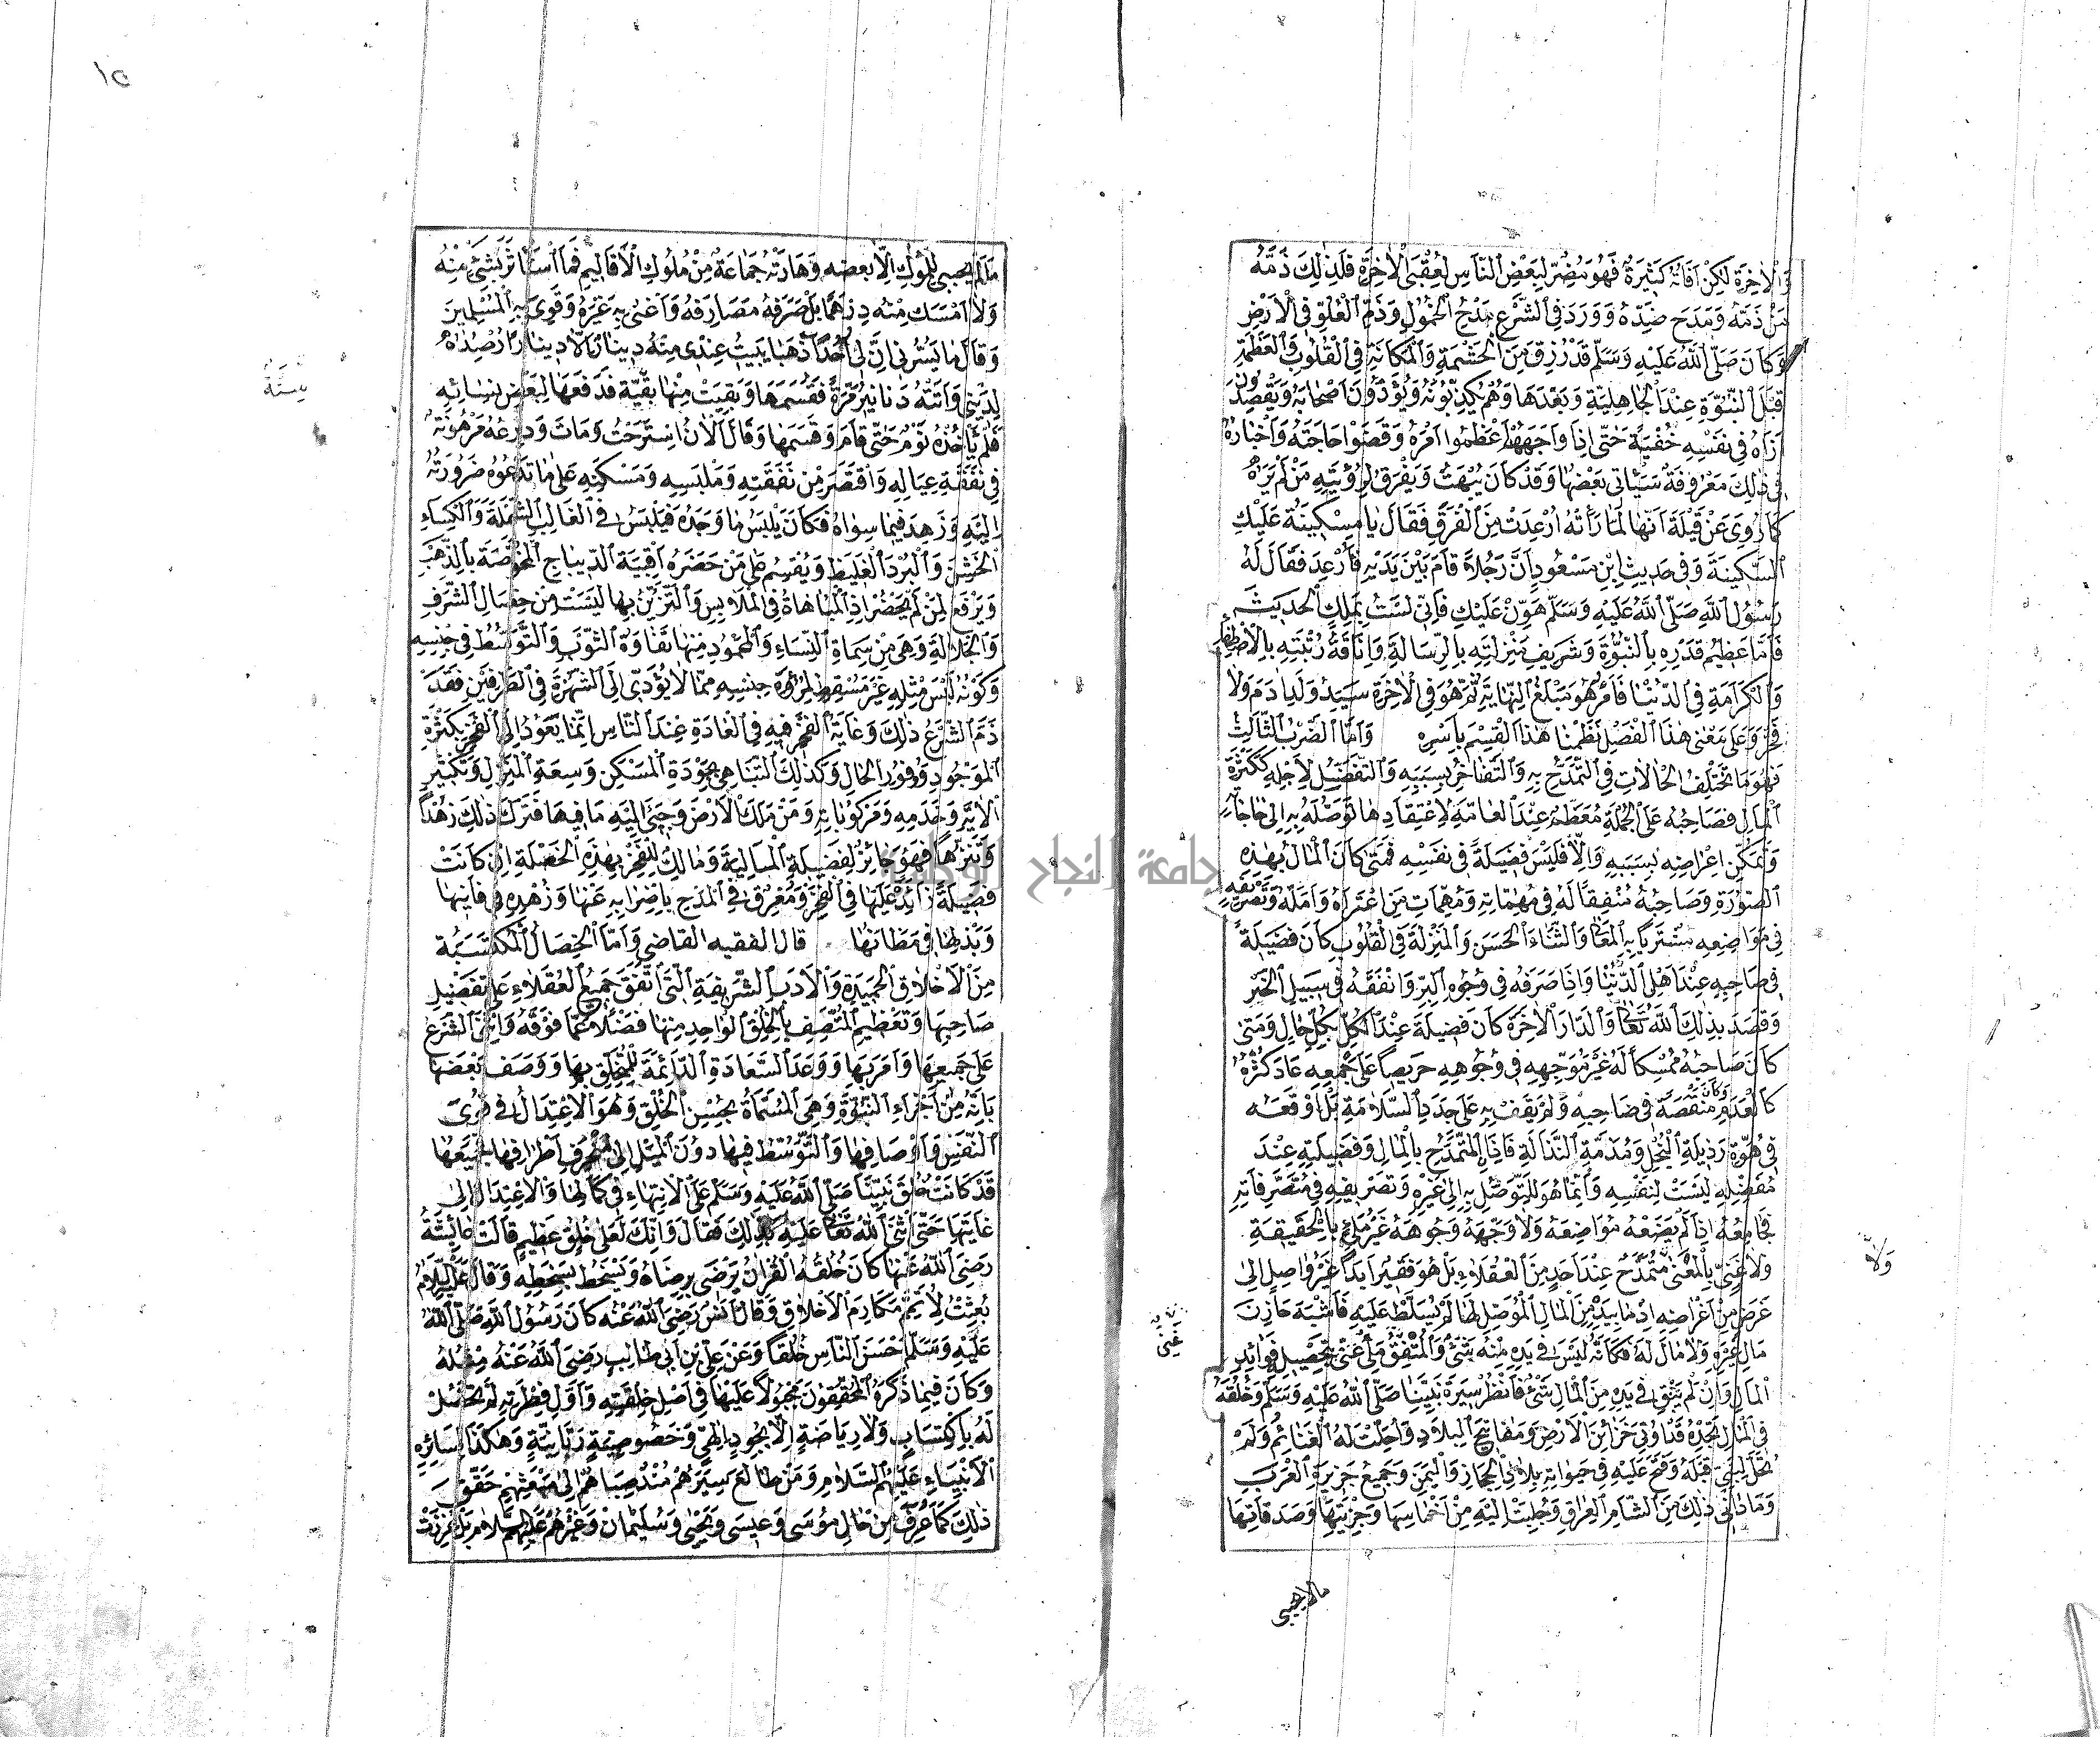 وَالْاٰخِرَةِ لٰكِنْ اٰفَاتُهُ كَثِيرَةٌ فَهُوَ مُضِرٌّ لِبَعْضِ النَّاسِ لِعُقْبَى الْاٰخِرَةِ فَلِذٰلِكَ ذَمَّهُ
مَنْ ذَمَّهُ وَمَدَحَ ضِدَّهُ وَوَرَدَ فِي الشَّرْعِ مَدْحُ الْخُمُولِ وَذَمُّ الْعُلُوِّ فِي الْاَرْضِ
وَكَانَ صَلَّى اللّٰهُ عَلَيْهِ وَسَلَّمَ قَدْ رُزِقَ مِنَ الْحِشْمَةِ وَالْمَكَانَةِ فِي الْقُلُوبِ وَالْعَظَمَةِ
قَبْلَ النُّبُوَّةِ عِنْدَ الْجَاهِلِيَّةِ وَبَعْدَهَا وَهُمْ يُكَذِّبُونَهُ وَيُؤْذُونَ اَصْحَابَهُ وَيَقْصِدُونَ
اَذَاهُ فِي نَفْسِهِ خُفْيَةً حَتّٰى اِذَا وَاجَهَهُمْ اَعْظَمُوا اَمْرَهُ وَقَضَوْا حَاجَتَهُ وَاَخْبَارُهُ
فِي ذٰلِكَ مَعْرُوفَةٌ سَيَأْتِي بَعْضُهَا وَقَدْ كَانَ يُبْهَتُ وَيَفْرَقُ لِرُؤْيَتِهِ مَنْ لَمْ يَرَهُ
كَمَا رُوِيَ عَنْ قَيْلَةَ اَنَّهَا لَمَّا رَأَتْهُ اُرْعِدَتْ مِنَ الْفَرَقِ فَقَالَ يَا مِسْكِينَةُ عَلَيْكِ
السَّكِينَةَ وَفِي حَدِيثِ ابْنِ مَسْعُودٍ اَنَّ رَجُلًا قَامَ بَيْنَ يَدَيْهِ فَاُرْعِدَ فَقَالَ لَهُ
رَسُولُ اللّٰهِ صَلَّى اللّٰهُ عَلَيْهِ وَسَلَّمَ هَوِّنْ عَلَيْكَ فَاِنِّي لَسْتُ بِمَلِكٍ الْحَدِيثَ
فَاَمَّا عَظِيمُ قَدْرِهِ بِالنُّبُوَّةِ وَشَرِيفُ مَنْزِلَتِهِ بِالرِّسَالَةِ وَاِنَافَةُ رُتْبَتِهِ بِالْاِصْطِفَاءِ
وَالْكَرَامَةِ فِي الدُّنْيَا فَاَمْرٌ هُوَ مَبْلَغُ النِّهَايَةِ ثُمَّ هُوَ فِي الْاٰخِرَةِ سَيِّدُ وَلَدِ اٰدَمَ وَلَا
فَخْرَ وَعَلٰى مَعْنٰى هٰذَا الْفَصْلِ نَظَمْنَا هٰذَا الْقِسْمَ بِاَسْرِهِ وَاَمَّا الضَّرْبُ الثَّالِثُ
فَهُوَ مَا تَخْتَلِفُ الْحَالَاتُ فِي التَّمَدُّحِ بِهِ وَالتَّفَاخُرِ بِسَبَبِهِ وَالتَّفْضِيلِ لِاَجْلِهِ كَكَثْرَةِ
الْمَالِ فَصَاحِبُهُ عَلَى الْجُمْلَةِ مُعَظَّمٌ عِنْدَ الْعَامَّةِ لِاعْتِقَادِهَا تَوَصُّلَهُ بِهِ اِلٰى حَاجَاتِهِ
وَتَمَكُّنِ اَغْرَاضِهِ بِسَبَبِهِ وَاِلَّا فَلَيْسَ فَضِيلَةً فِي نَفْسِهِ فَمَتٰى كَانَ الْمَالُ بِهٰذِهِ
الصُّورَةِ وَصَاحِبُهُ مُنْفِقًا لَهُ فِي مُهِمَّاتِهِ وَمُهِمَّاتِ مَنِ اعْتَرَاهُ وَاَمَّلَهُ وَتَصْرِيفِهِ
فِي مَوَاضِعِهِ مُشْتَرِيًا بِهِ الْمَعَالِيَ وَالثَّنَاءَ الْحَسَنَ وَالْمَنْزِلَةَ فِي الْقُلُوبِ كَانَ فَضِيلَةً
فِي صَاحِبِهِ عِنْدَ اَهْلِ الدُّنْيَا وَاِذَا صَرَفَهُ فِي وُجُوهِ الْبِرِّ وَاَنْفَقَهُ فِي سَبِيلِ الْخَيْرِ
وَقَصَدَ بِذٰلِكَ اللّٰهَ تَعَالٰى وَالدَّارَ الْاٰخِرَةَ كَانَ فَضِيلَةً عِنْدَ الْكُلِّ بِكُلِّ حَالٍ وَمَتٰى
كَانَ صَاحِبُهُ مُمْسِكًا لَهُ غَيْرَ مُوَجِّهِهِ فِي وُجُوهِهِ حَرِيصًا عَلٰى جَمْعِهِ عَادَ كُثْرُهُ
كَالْعَدَمِ وَكَانَ مَنْقَصَةً فِي صَاحِبِهِ وَلَمْ يَقِفْ بِهِ عَلٰى جَدَدِ السَّلَامَةِ بَلْ اَوْقَعَهُ
فِي هُوَّةِ رَذِيلَةِ الْبُخْلِ وَمَذَمَّةِ النَّذَالَةِ فَاِذًا التَّمَدُّحُ بِالْمَالِ وَفَضِيلَتُهُ عِنْدَ
مُفَضِّلِهِ لَيْسَتْ لِنَفْسِهِ وَاِنَّمَا هُوَ لِلتَّوَصُّلِ بِهِ اِلٰى غَيْرِهِ وَتَصْرِيفِهِ فِي مُتَصَرَّفَاتِهِ
فَجَامِعُهُ اِذَا لَمْ يَضَعْهُ مَوَاضِعَهُ وَلَا وَجَّهَهُ وُجُوهَهُ غَيْرُ مَلِيءٍ بِالْحَقِيقَةِ
وَلَا غَنِيٍّ بِالْمَعْنٰى وَلَا مُمْتَدَحٍ عِنْدَ اَحَدٍ مِنَ الْعُقَلَاءِ بَلْ هُوَ فَقِيرٌ اَبَدًا غَيْرُ وَاصِلٍ اِلٰى
غَرَضٍ مِنْ اَغْرَاضِهِ اِذْ مَا بِيَدِهِ مِنَ الْمَالِ الْمُوصِلِ لَهَا لَمْ يُسَلَّطْ عَلَيْهِ فَاَشْبَهَ خَازِنَ
مَالِ غَيْرِهِ وَلَا مَالَ لَهُ فَكَاَنَّهُ لَيْسَ فِي يَدِهِ مِنْهُ شَيْءٌ وَالْمُنْفِقُ مَلِيءٌ غَنِيٌّ بِتَحْصِيلِهِ فَوَائِدَ
الْمَالِ وَاِنْ لَمْ يَبْقَ فِي يَدِهِ مِنَ الْمَالِ شَيْءٌ فَانْظُرْ سِيرَةَ نَبِيِّنَا صَلَّى اللّٰهُ عَلَيْهِ وَسَلَّمَ وَخُلُقَهُ
فِي الْمَالِ تَجِدْهُ قَدْ اُوتِيَ خَزَائِنَ الْاَرْضِ وَمَفَاتِيحَ الْبِلَادِ وَاُحِلَّتْ لَهُ الْغَنَائِمُ وَلَمْ
تُحَلَّ لِنَبِيٍّ قَبْلَهُ وَفُتِحَ عَلَيْهِ فِي حَيَاتِهِ بِلَادُ الْحِجَازِ وَالْيَمَنِ وَجَمِيعُ جَزِيرَةِ الْعَرَبِ
وَمَا دَانٰى ذٰلِكَ مِنَ الشَّامِ وَالْعِرَاقِ وَجُلِبَتْ اِلَيْهِ مِنْ اَخْمَاسِهَا وَجِزْيَتِهَا وَصَدَقَاتِهَا
وَلَا
غَنِيٌّ
مالا يجبى
١٥
مَا لَمْ يُجْبَ لِلْمُلُوكِ اِلَّا بَعْضُهُ وَهَادَتْهُ جَمَاعَةٌ مِنْ مُلُوكِ الْاَقَالِيمِ فَمَا اسْتَأْثَرَ بِشَيْءٍ مِنْهُ
وَلَا اَمْسَكَ مِنْهُ دِرْهَمًا بَلْ صَرَفَهُ مَصَارِفَهُ وَاَغْنٰى بِهِ غَيْرَهُ وَقَوّٰى بِهِ الْمُسْلِمِينَ
وَقَالَ مَا يَسُرُّنِي اَنَّ لِي اُحُدًا ذَهَبًا يَبِيتُ عِنْدِي مِنْهُ دِينَارٌ اِلَّا دِينَارًا اُرْصِدُهُ
لِدَيْنِي وَاَتَتْهُ دَنَانِيرُ مَرَّةً فَقَسَمَهَا وَبَقِيَتْ مِنْهَا بَقِيَّةٌ فَدَفَعَهَا لِبَعْضِ نِسَائِهِ
فَلَمْ يَأْخُذْهُ نَوْمٌ حَتّٰى قَامَ وَقَسَمَهَا وَقَالَ الْاٰنَ اسْتَرَحْتُ وَمَاتَ وَدِرْعُهُ مَرْهُونَةٌ
فِي نَفَقَةِ عِيَالِهِ وَاقْتَصَرَ مِنْ نَفَقَتِهِ وَمَلْبَسِهِ وَمَسْكَنِهِ عَلٰى مَا تَدْعُوهُ ضَرُورَتُهُ
اِلَيْهِ وَزَهِدَ فِيمَا سِوَاهُ فَكَانَ يَلْبَسُ مَا وَجَدَهُ فَيَلْبَسُ فِي الْغَالِبِ الشَّمْلَةَ وَالْكِسَاءَ
الْخَشِنَ وَالْبُرْدَ الْغَلِيظَ وَيَقْسِمُ عَلٰى مَنْ حَضَرَهُ اَقْبِيَةَ الدِّيبَاجِ الْمُخَوَّصَةَ بِالذَّهَبِ
وَيَرْفَعُ لِمَنْ لَمْ يَحْضُرْ اِذِ الْمُبَاهَاةُ فِي الْمَلَابِسِ وَالتَّزَيُّنُ بِهَا لَيْسَتْ مِنْ خِصَالِ الشَّرَفِ
وَالْجَلَالَةِ وَهِيَ مِنْ سِمَاةِ النِّسَاءِ وَالْمَحْمُودُ مِنْهَا نَقَاوَةُ الثَّوْبِ وَالتَّوَسُّطُ فِي جِنْسِهِ
وَكَوْنُهُ لُبْسَ مِثْلِهِ غَيْرَ مُسْقِطٍ لِمُرُوءَةِ جِنْسِهِ مِمَّا لَا يُؤَدِّي اِلَى الشُّهْرَةِ فِي الطَّرَفَيْنِ فَقَدْ
ذَمَّ الشَّرْعُ ذٰلِكَ وَغَايَةُ الْفَخْرِ فِيهِ فِي الْعَادَةِ عِنْدَ النَّاسِ اِنَّمَا يَعُودُ اِلَى الْفَخْرِ بِكَثْرَةِ
الْمَوْجُودِ وَوُفُورِ الْحَالِ وَكَذٰلِكَ التَّبَاهِي بِجَوْدَةِ الْمَسْكَنِ وَسِعَةِ الْمَنْزِلِ وَتَكْثِيرِ
اٰلَاتِهِ وَخَدَمِهِ وَمَرْكُوبَاتِهِ وَمَنْ مَلَكَ الْاَرْضَ وَجُبِيَ اِلَيْهِ مَا فِيهَا فَتَرَكَ ذٰلِكَ زُهْدًا
وَتَنَزُّهًا فَهُوَ حَائِزٌ لِفَضِيلَةِ الْمَالِيَّةِ وَمَالِكٌ لِلْفَخْرِ بِهٰذِهِ الْخَصْلَةِ اِنْ كَانَتْ
فَضِيلَةً زَائِدٌ عَلَيْهَا فِي الْفَخْرِ وَمُعْرِقٌ فِي الْمَدْحِ بِاِضْرَابِهِ عَنْهَا وَزُهْدِهِ فِي فَانِيهَا
وَبَذْلِهَا فِي مَظَانِّهَا قال الفقيه القاضي وَاَمَّا الْخِصَالُ الْمُكْتَسَبَةُ
مِنَ الْاَخْلَاقِ الْحَمِيدَةِ وَالْاٰدَابِ الشَّرِيفَةِ الَّتِي اتَّفَقَ جَمِيعُ الْعُقَلَاءِ عَلٰى تَفْضِيلِ
صَاحِبِهَا وَتَعْظِيمِ الْمُتَّصِفِ بِالْخُلُقِ الْوَاحِدِ مِنْهَا فَضْلًا عَمَّا فَوْقَهُ وَاَثْنَى الشَّرْعُ
عَلٰى جَمِيعِهَا وَاَمَرَ بِهَا وَوَعَدَ السَّعَادَةَ الدَّائِمَةَ لِلْمُتَخَلِّقِ بِهَا وَوَصَفَ بَعْضَهَا
بِاَنَّهُ مِنْ اَجْزَاءِ النُّبُوَّةِ وَهِيَ الْمُسَمَّاةُ بِحُسْنِ الْخُلُقِ وَهُوَ الْاِعْتِدَالُ فِي قُوَى
النَّفْسِ وَاَوْصَافِهَا وَالتَّوَسُّطُ فِيهَا دُونَ الْمَيْلِ اِلٰى مُنْحَرِفِ اَطْرَافِهَا فَجَمِيعُهَا
قَدْ كَانَتْ خُلُقَ نَبِيِّنَا صَلَّى اللّٰهُ عَلَيْهِ وَسَلَّمَ عَلَى الْاِنْتِهَاءِ فِي كَمَالِهَا وَالْاِعْتِدَالِ اِلٰى
غَايَتِهَا حَتّٰى اَثْنَى اللّٰهُ تَعَالٰى عَلَيْهِ بِذٰلِكَ فَقَالَ وَاِنَّكَ لَعَلٰى خُلُقٍ عَظِيمٍ قَالَتْ عَائِشَةُ
رَضِيَ اللّٰهُ عَنْهَا كَانَ خُلُقُهُ الْقُرْاٰنَ يَرْضٰى بِرِضَاهُ وَيَسْخَطُ بِسَخَطِهِ وَقَالَ عَلَيْهِ السَّلَامُ
بُعِثْتُ لِاُتَمِّمَ مَكَارِمَ الْاَخْلَاقِ وَقَالَ اَنَسٌ رَضِيَ اللّٰهُ عَنْهُ كَانَ رَسُولُ اللّٰهِ صَلَّى اللّٰهُ
عَلَيْهِ وَسَلَّمَ اَحْسَنَ النَّاسِ خُلُقًا وَعَنْ عَلِيِّ بْنِ اَبِي طَالِبٍ رَضِيَ اللّٰهُ عَنْهُ مِثْلُهُ
وَكَانَ فِيمَا ذَكَرَهُ الْمُحَقِّقُونَ مَجْبُولًا عَلَيْهَا فِي اَصْلِ خِلْقَتِهِ وَاَوَّلِ فِطْرَتِهِ لَمْ تَحْصُلْ
لَهُ بِاكْتِسَابٍ وَلَا رِيَاضَةٍ اِلَّا بِجُودٍ اِلٰهِيٍّ وَخُصُوصِيَّةٍ رَبَّانِيَّةٍ وَهٰكَذَا لِسَائِرِ
الْاَنْبِيَاءِ عَلَيْهِمُ السَّلَامُ وَمَنْ طَالَعَ سِيَرَهُمْ مُنْذُ صِبَاهُمْ اِلٰى مَبْعَثِهِمْ حَقَّقَ
ذٰلِكَ كَمَا عُرِفَ مِنْ حَالِ مُوسٰى وَعِيسٰى وَيَحْيٰى وَسُلَيْمَانَ وَغَيْرِهِمْ عَلَيْهِمُ السَّلَامُ بَلْ غُرِزَتْ
جامعة النجاح الوطنية